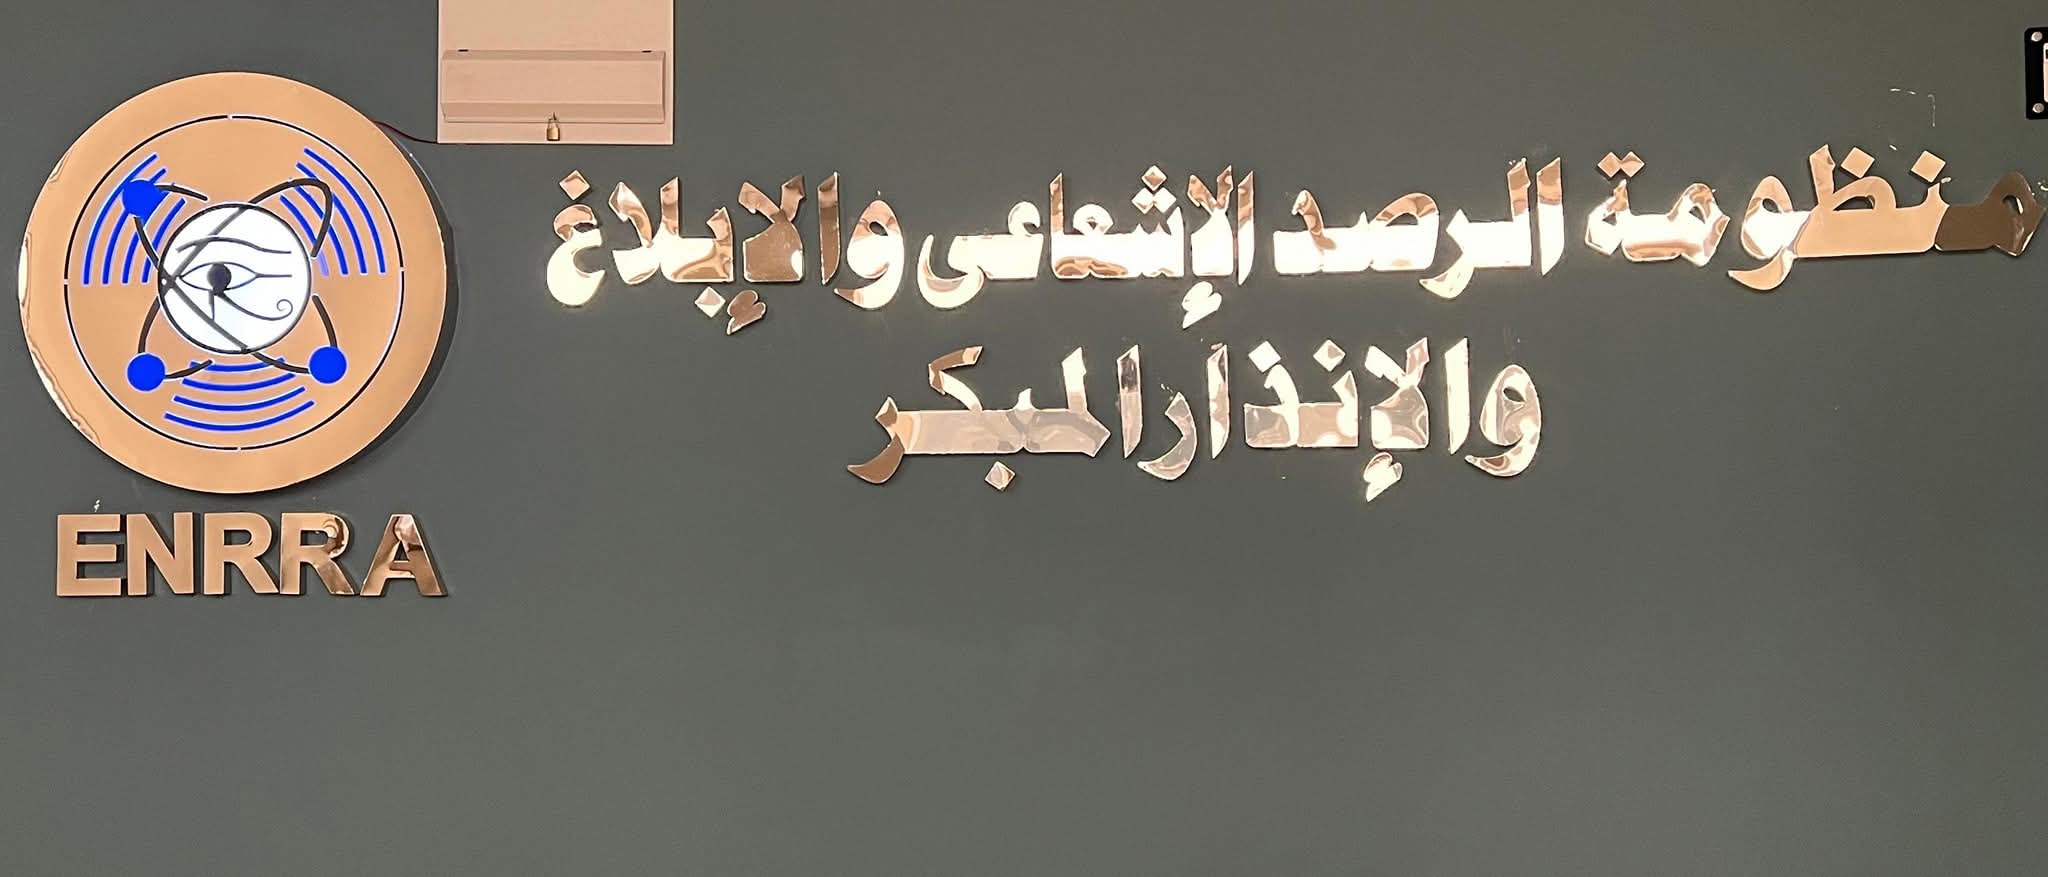 منظومة الرصد الإشعاعى والإبلاغ
والإنذار المبكر
ENRRA